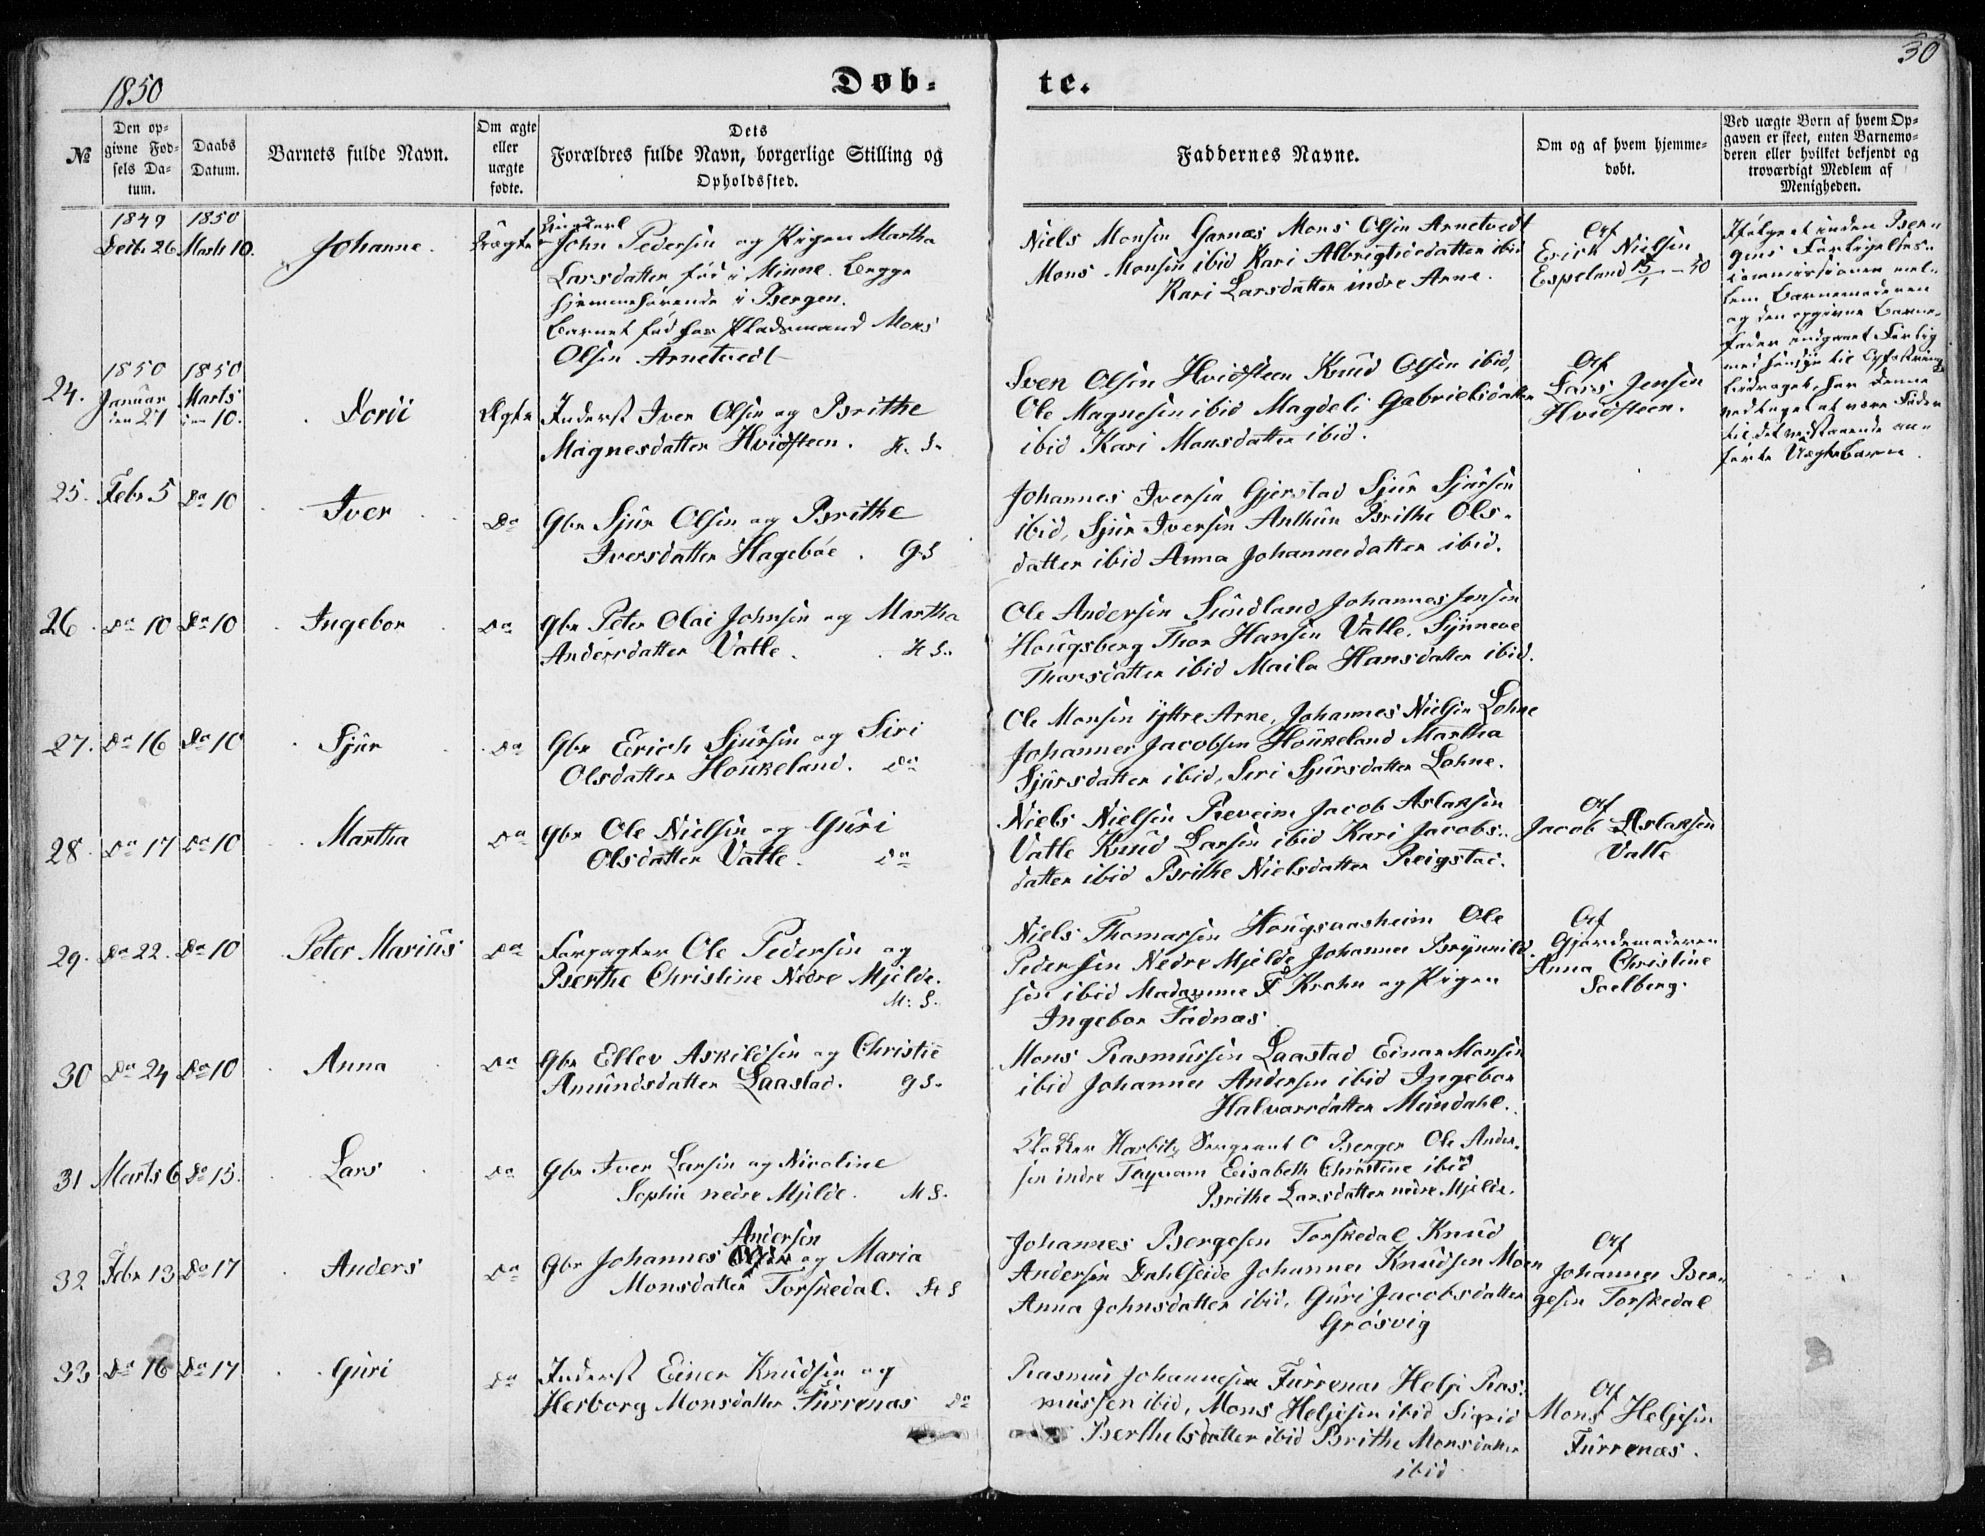 1850
Døb-
te.
30
No
Den op-
givne Fød-
sels Da-
tum.
Daabs
Datum.
Barnets fulde Navn.
Om ægte
eller
uægte
fødte.
Dets
Forældres fulde Navn, borgerlige Stilling og
Opholdssted.
Faddernes Navne.
Om og af hvem hjemme-
døbt.
Ved uægte Børn af hvem Op-
gaven er skeet, enten Barnemo-
deren eller hvilket bekjendt og
troværdigt Medlem af
Menigheden.
1849 1850
Decbr 26 Marts 10. Johanne. Uægte
Ungkarl
John Pedersen og Pigen Martha
Larsdatter fød i Minne. Begge
hjemmehørende i Bergen.
Barnet fød hos Pladsmand Mons
Olsen Arnetvedt
Niels Monsen Garnæs Mons Olsen Arnetvedt
Mons Monsen ibid Kari Albrigtsdatter ibid
Kari Larsdatter indre Arne.
Af
Erick Nielsen
Espeland 15/1 - 50
Ifølge et inden Ber-
gens Forligelses-
commissionen mel-
lem Barnemoderen
og den opgivne Barne-
fader indgaaet Forlig
med Hensyn til Opfostrings
bidraget, har denne
vedtaget at være Fader
til det nedstaaende an-
førte Uægtebarn.
1850 1850
24. Januar Marts
den 27 den 10. Dorii Ægte
Inderst Iver Olsen og Brithe
Magnesdatter Hvidsteen. H. S.
Sven Olsen Hvidsteen Knud Olsen ibid,
Ole Magnesen ibid Magdeli Gabrielsdatter
ibid Kari Monsdatter ibid.
Af
Lars Jensen
Hvidsteen.
25. Febr 5 Do 10 Iver Do
Gbr Sjur Olsen og Brithe
Iversdatter Hagebøe. G.S
Johannes Iversen Gjerstad Sjur Sjursen
ibid, Sjur Iversen Anthun Brithe Ols-
datter ibid Anna Johannesdatter ibid.
26. Do 10 Do 10 Ingebor Do
Gbr Peter Olai Johnsen og Martha
Andersdatter Vatle. H S.
Ole Andersen Sundland Johannes Jensen
Hougsberg Thor Hansen Vatle, Synneve
Thorsdatter ibid Maila Hansdatter ibid.
27. Do 16 Do 10 Sjur Do
Gbr Erich Sjursen og Siri
Olsdatter Houkeland. Do
Ole Monsen yttre Arne, Johannes Nielsen Lohne
Johannes Jacobsen Houkeland Martha
Sjursdatter ibid, Seri Sjursdatter Lohne.
28. Do 17 Do 10 Martha Do
Gbr Ole Nielsen og Guri
Olsdatter Vatle. Do
Niels Nielsen Reveim Jacob Aslaksen
Vatle Knud Larsen ibid Kari Jacobs-
datter ibid Brithe Nielsdatter Reigstad.
Af
Jacob Aslaksen
Vatle
29. Do 22. Do 10 Peter Marius Do
Forpagter Ole Pedersen og
Berthe Christine Nedre Mjelde.
M. S.
Niels Thomassen Hougsaasheim Ole
Pedersen Nedre Mjelde Johannes Brynnild-
sen ibid Madamme F Krohn og Pigen
Ingebor Fadnæs
Af
Gjordemoderen
Anna Christine
Soelberg.
30 Do 24 Do 10 Anna Do
Gbr Ellev Askildsen og Christie
Amundsdatter Laastad. G S.
Mons Rasmussen Laastad Einar Monsen
ibid Johannes Andersen ibid Ingebor
Halvorsdatter Mundahl.
31 Marts 6 Do 15. Lars Do
Gbr Iver Larsen og Nicoline
Sophie nedre Mjelde. M S.
Klokker Harbitz Sergeant O Berger Ole Ander-
sen indre Taquam Elisabeth Christine ibid og
Brithe Larsdatter nedre Mjelde.
32 Febr 13 Do 17 Anders Do
Andersen
Gbr Johannes Olsen og Maria
Monsdatter Torskedal. H S
Johannes Bergesen Torskedal Knud
Andersen Dahlseide Johannes Knudsen Moen
Anna Johnsdatter ibid, Guri Jacobsdatter
Grøsvig
Af
Johannes Ber-
gesen Torskedal
33 Do 16 Do 17 Guri Do
Inderst Einer Knudsen og
Herborg Monsdatter Furrenæs Do
Rasmus Johannesen Furrenæs Helje Ras-
mussen ibid, Mons Heljesen ibid Sigrid
Berthelsdatter ibid Brithe Monsdatter
ibid
Af
Mons Heljesen
Furrenæs.